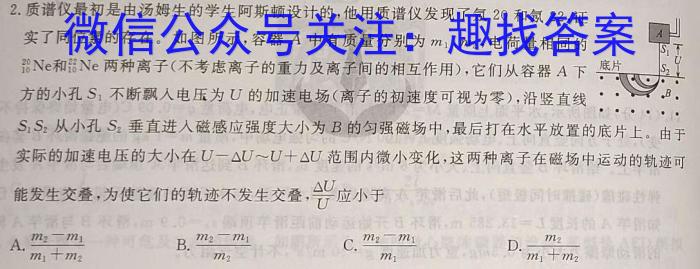 2. 质谱仪最初是由汤姆生的学生阿斯顿设计的,他用质谱仪发现了氖20和氖22,证
微信公众号关注:趣找答案
实了同位素的存在。如图所示,容器A中有质量分别为m₁、m₂,电荷量相同的
²⁰₁₀Ne和²²₁₀Ne两种离子(不考虑离子的重力及离子间的相互作用),它们从容器A下
方的小孔S₁不断飘入电压为U的加速电场(离子的初速度可视为零),沿竖直线
S₁S₂从小孔S₂垂直进入磁感应强度大小为B的匀强磁场中,最后打在水平放置的底片上。由于
实际的加速电压的大小在U-ΔU~U+ΔU范围内微小变化,这两种离子在磁场中运动的轨迹可
能发生交叠,为使它们的轨迹不发生交叠,ΔU/U应小于
A. (m₂-m₁)/(m₁+m₂) B. (m₂-m₁)/m₂ C. (m₂-m₁)/m₁ D. m₂/(m₁+m₂)
A
S₁
U
S₂
底片
B